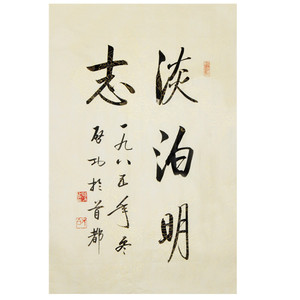 淡泊明
志
一九八五年冬
启功于首都